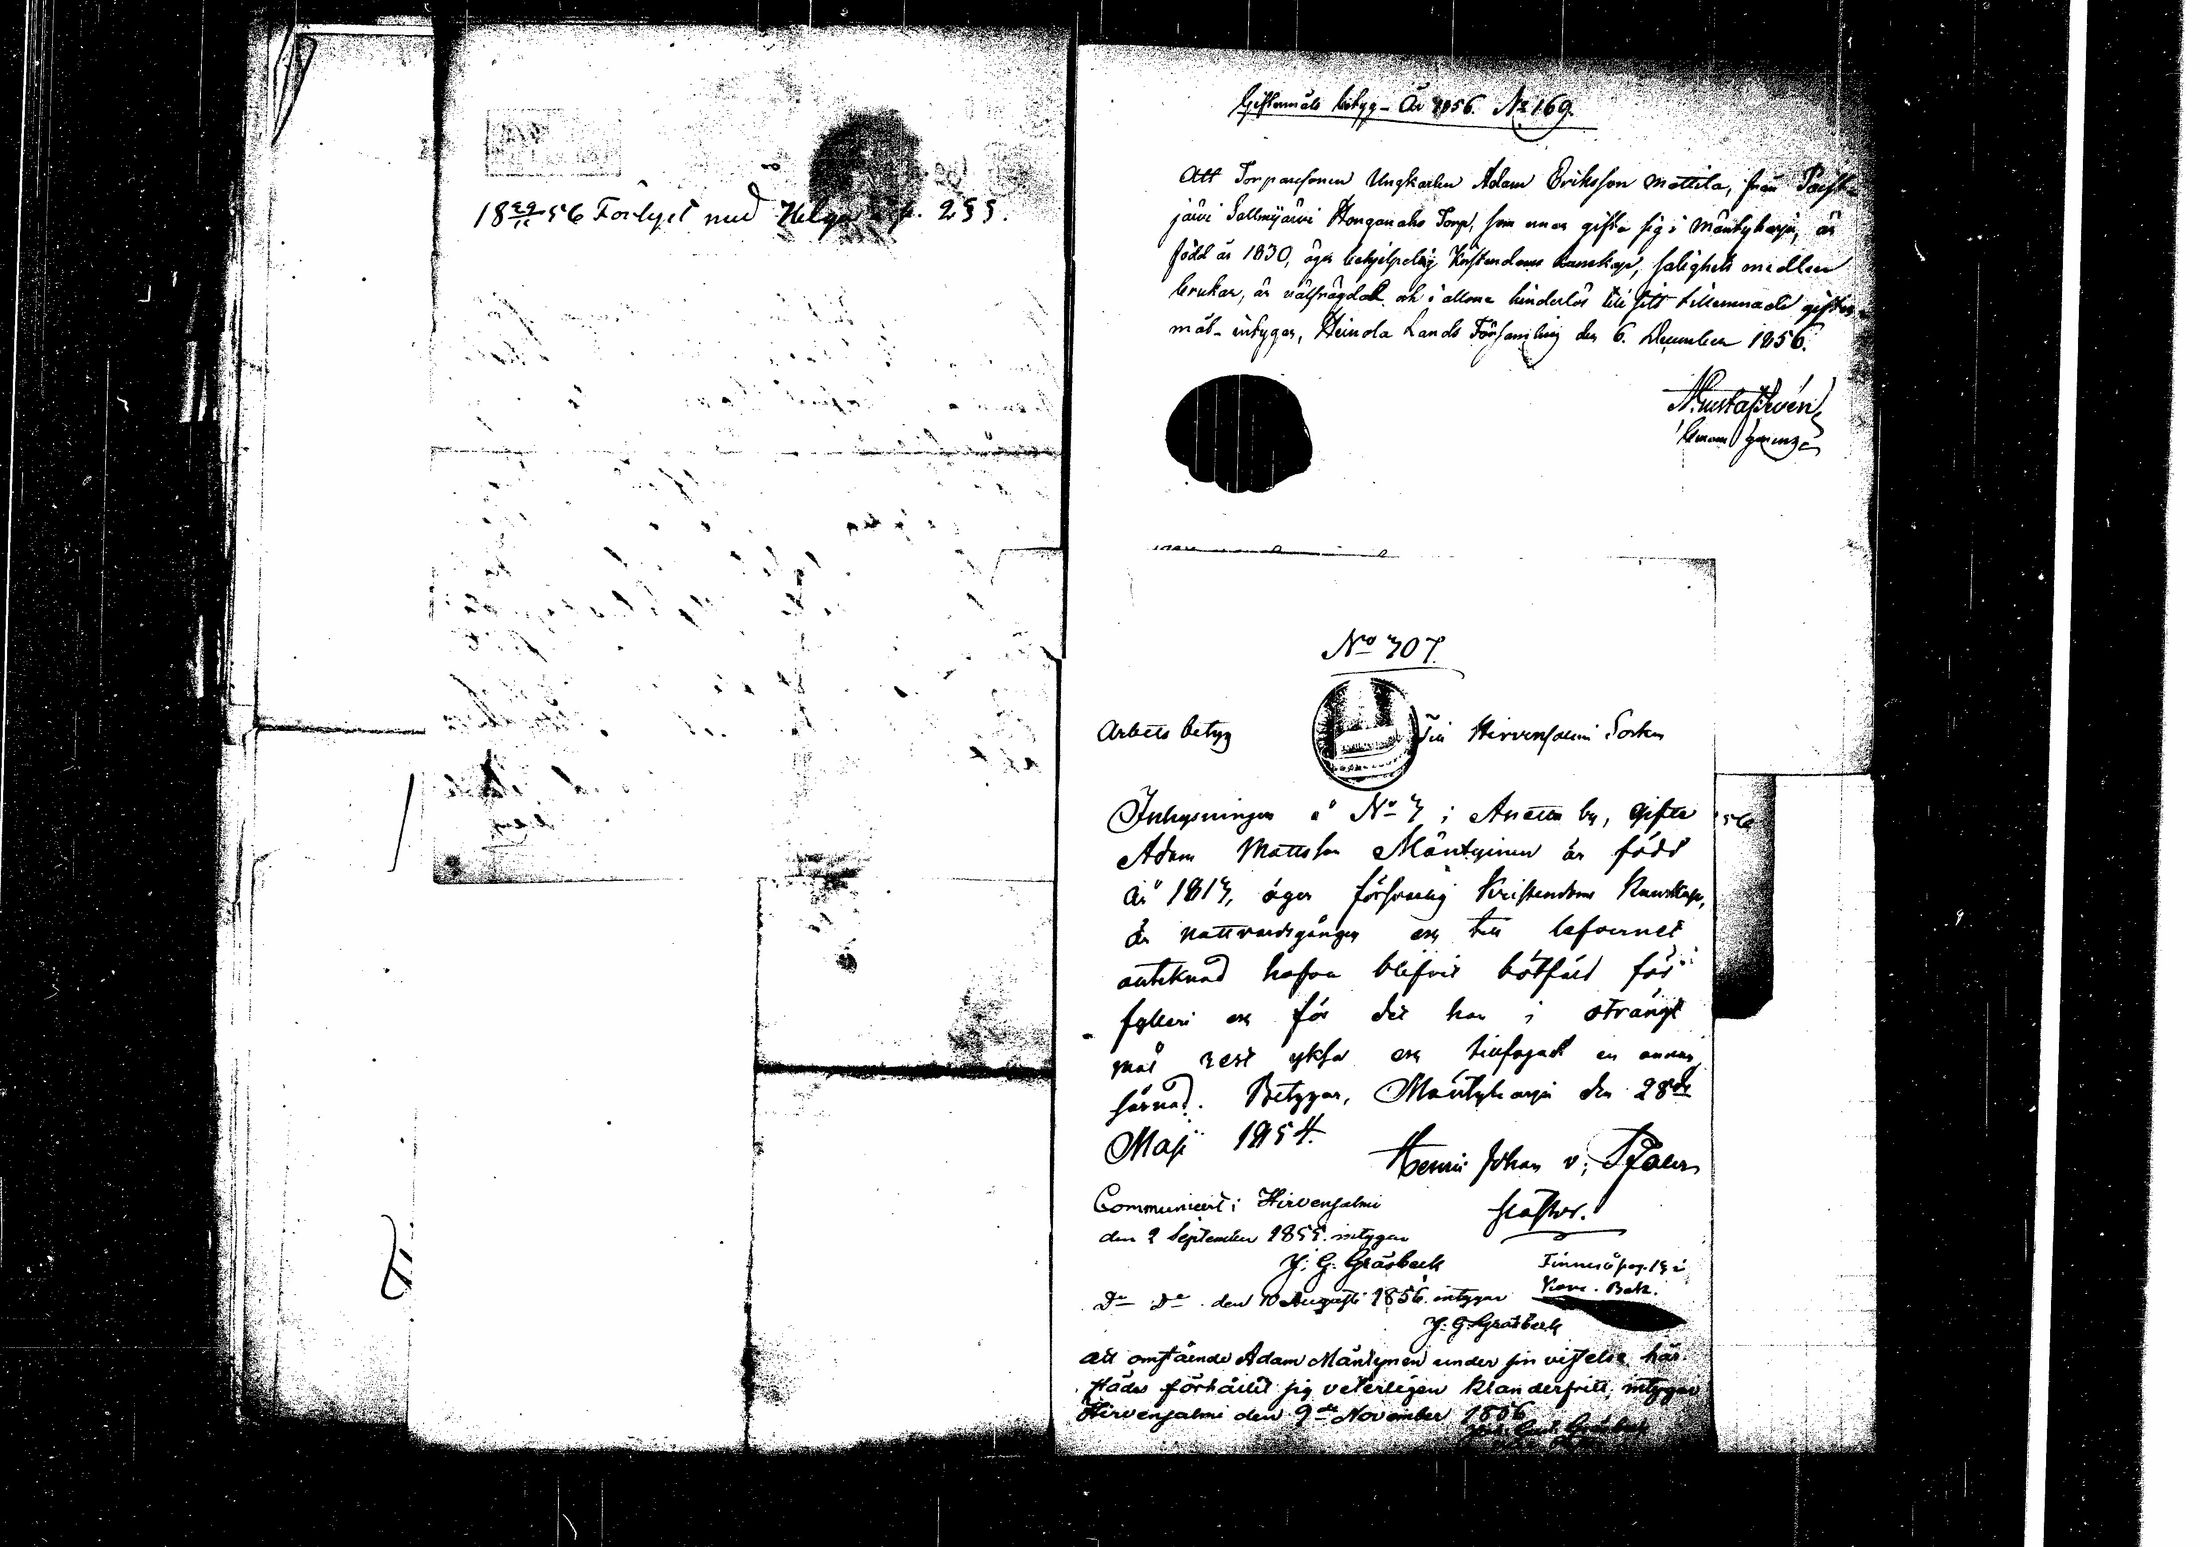 18 29/11 56 Förlyst med Helga p. 255.
Giftermåls betyg - År 1856. No 169.
Att Torparesonen Ungkarlen Adam Eriksson Mattila, från Paist-
järvi Sallmijärvi Honganaho Torp, som ernar gifta sig i Mäntyharju, är
född år 1830, äger behjelpelig Kristendoms kunskap, salighets medlen
brukar, är välfrägdad och i allone hinderlös till sitt tillernnade gifter-
mål - intygar, Heinola Lands Församling den 6. December 1856.
No 307.
Arbets betyg Till Hirvensalmi Socken
Inhysningen å No 7 i by, Gifte
Adam Mattsson Mäntyinen är född
År 1817, äger försvarlig Kristendoms Kunskap,
är nattvardsgången och till lefvernet
antecknad hafva blifvit bötfäld för
fylleri och för det han i strängt
mål rest yksa och tillfogat en annan
sårnad. Betygar, Mäntyharju den 28de
Maji 1854.
Henric Johan v. Pfaler
Pastor.
Communicerat i Hirvensalmi
den 2 September 1855. intygar
J. G. Gråsbeck
Finnes å pag. 15 i
Kom. Bok.
Do Do den 10 Augusti 1856. intygar
J. G. Gråsbeck
Att omstående Adam Mäntynen under sin vistelse här-
städes förhållit sig veterligen klanderfritt, intygar
Hirvensalmi den 9de November 1856